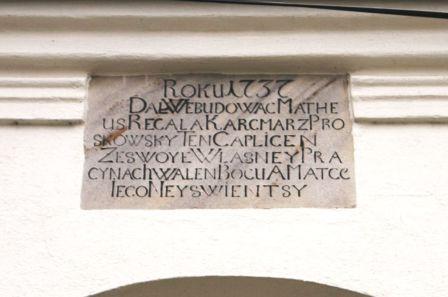 ROKU 1737
DAL WEBUDOWAC MATHE
US REGALA KARCMARZ PRO
SKOWSKY TEN CAPLICEN
ZESWOYE WŁASNEY PRA
CY NA CHWALEN BOGU A MATCE
IEGO NEYSWIENTSY